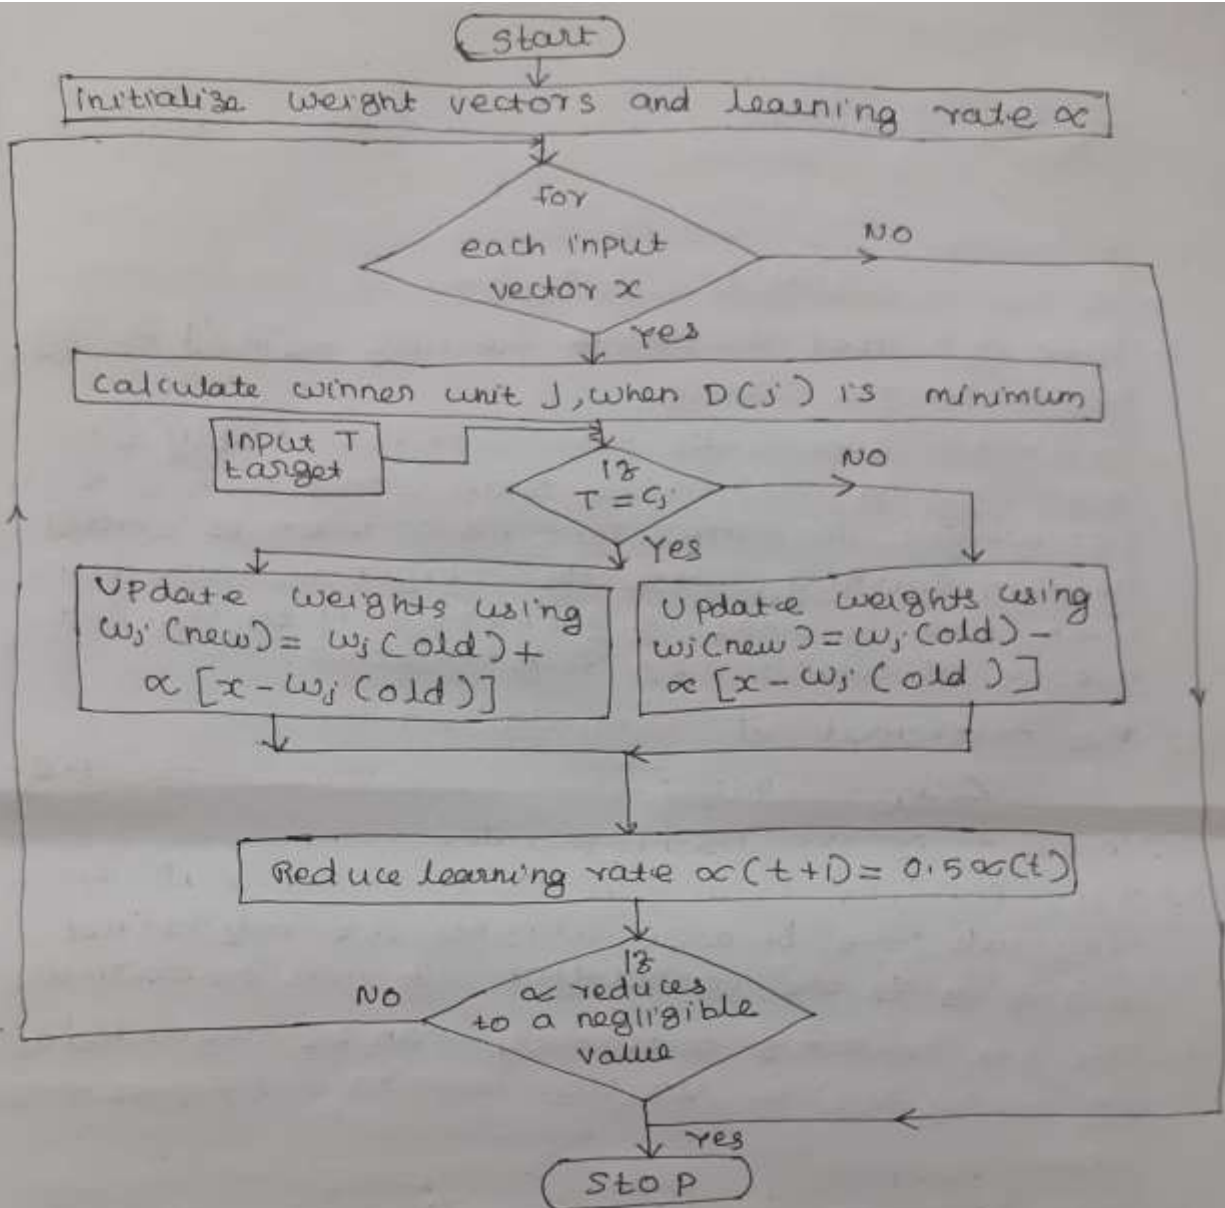 Start
Initialize weight vectors and learning rate ∝
for
each input
vector x
NO
Yes
Calculate winner unit J, when D(j) is minimum
Input T
target
If
T = Cj
NO
Yes
Update weights using
wj (new) = wj (old) +
∝ [x - wj (old)]
Update weights using
wj (new) = wj (old) -
∝ [x - wj (old)]
Reduce learning rate ∝(t+1) = 0.5∝(t)
If
∝ reduces
to a negligible
value
NO
Yes
Stop